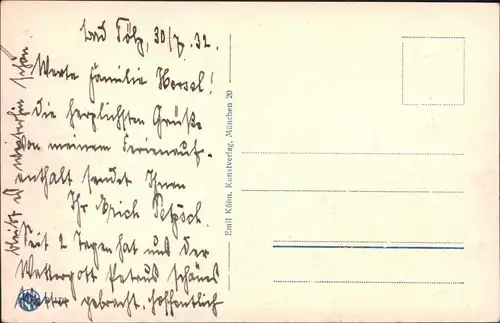 Bad Tölz, 30/7. 32.
Werte Familie Hersel!
die herzlichsten Grüße
von meinem Ferienauf-
enthalt sendet Ihnen
Ihr Erich Petzsch.
Seit 2 Tagen hat uns der
Wettergott Petrus schönes
Wetter gebracht. Hoffentlich
bleibt es weiterhin schön.
Emil Köhn, Kunstverlag, München 20